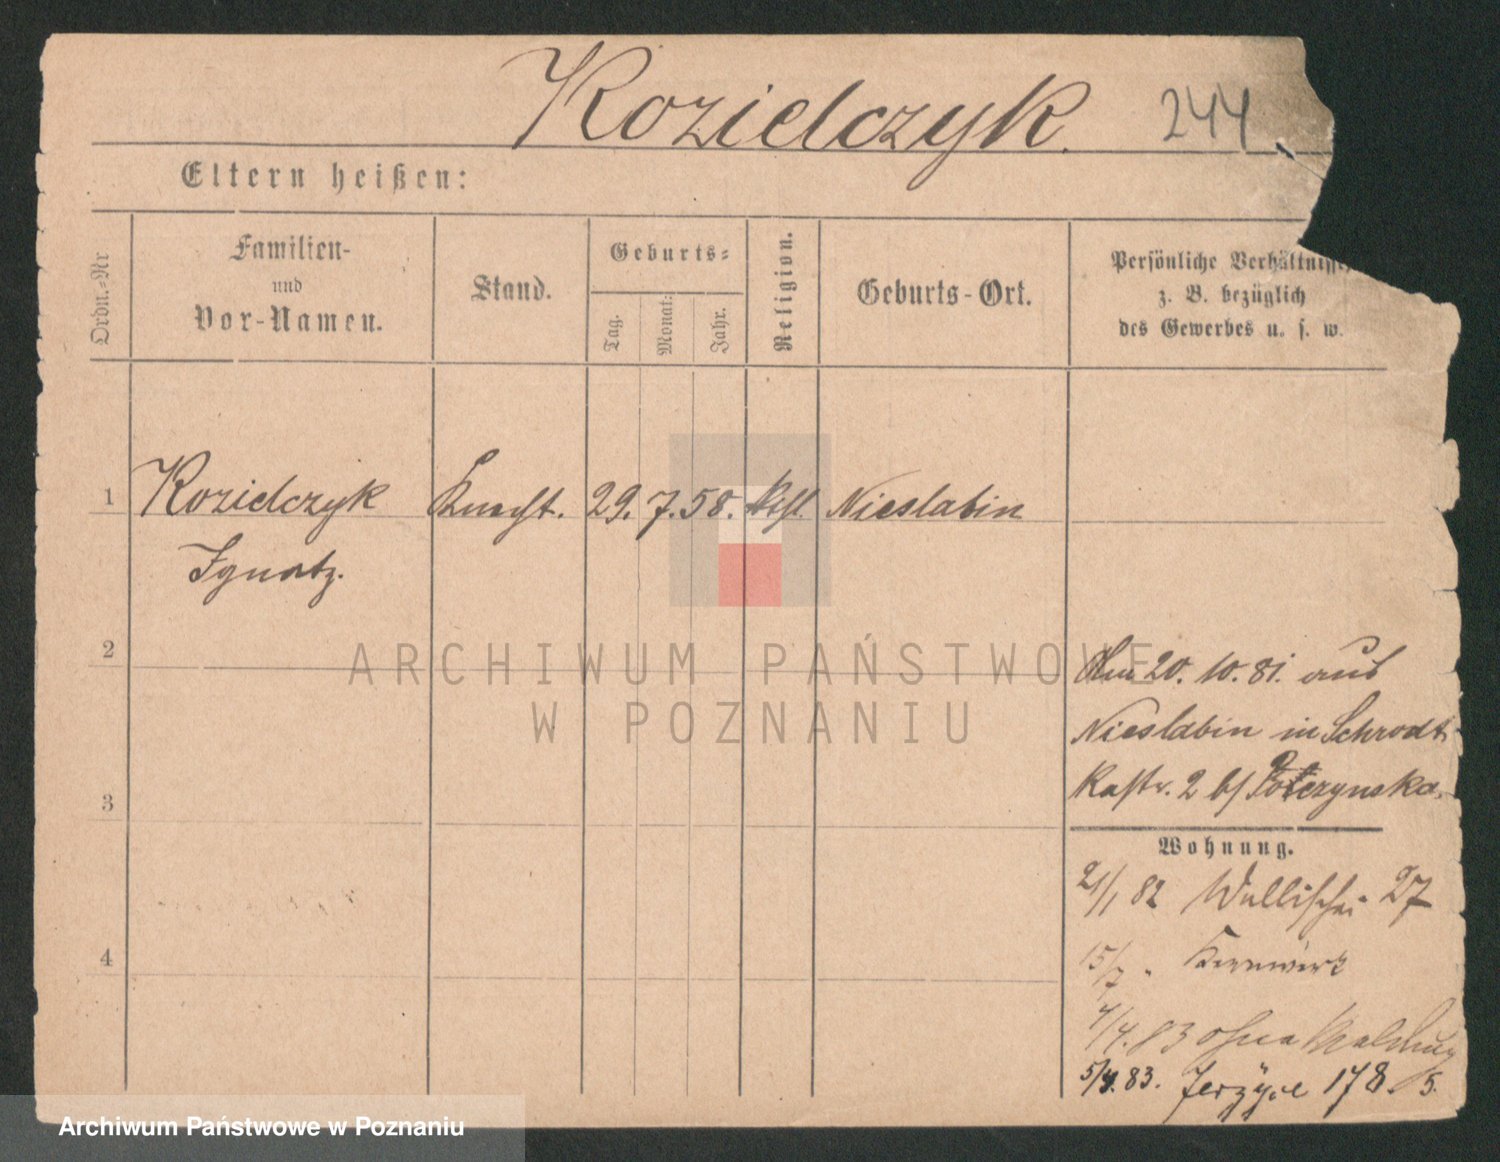 Kozielczyk. 244
Eltern heißen:
Ordn.-Nr
Familien-
und
Vor-Namen.
Stand.
Geburts-
Tag.
Monat:
Jahr.
Religion.
Geburts-Ort.
Persönliche Verhältnisse
z. B. bezüglich
des Gewerbes u. s. w.
1 Kozielczyk Knecht. 29. 7. 58. kthl. Nieslabin
Ignatz.
2
3
4
Am 20. 10. 81. aus
Nieslabin in Schrodt
kastr. 2 b/
Wohnung.
21/1 82 Wallischei 27
15/7 " Kernwerk
4/4. 83 ohne Meldung
5/4. 83. Jerzyce 178. 5.
ARCHIWUM PAŃSTWOWE
W POZNANIU
Archiwum Państwowe w Poznaniu